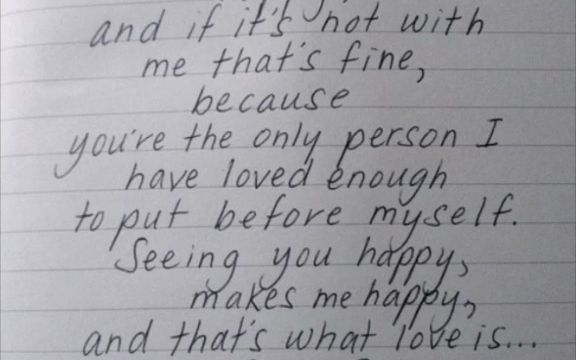 and if it's not with
me that's fine,
because
you're the only person I
have loved enough
to put before myself.
Seeing you happy,
makes me happy,
and that's what love is...